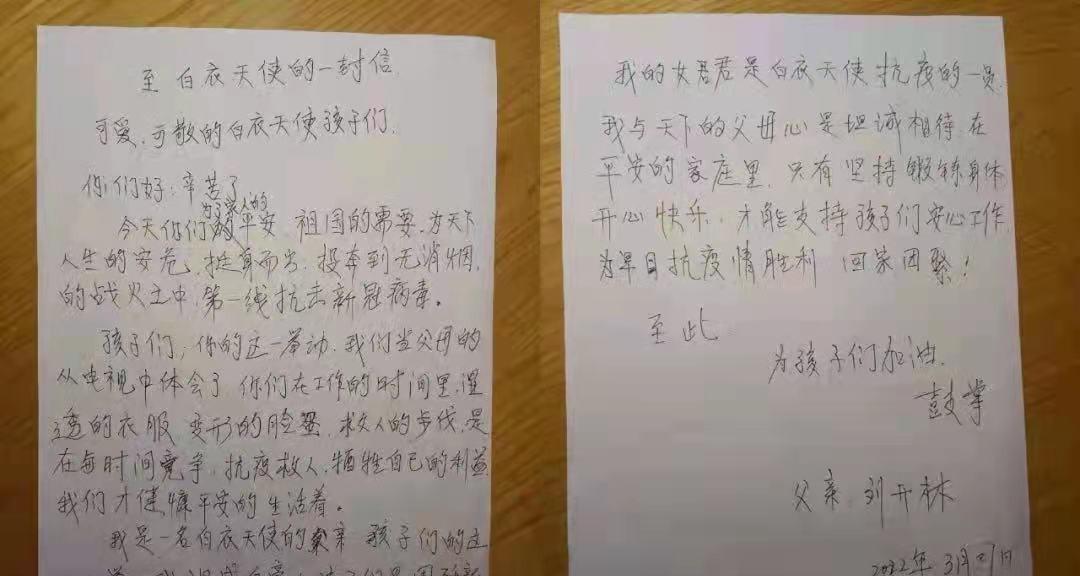 至 白衣天使的一封信
可爱、可敬的白衣天使孩子们、
你们好：辛苦了
为了家人的
今天你们的平安、祖国的需要、为天下
人生的安危、挺身而出、投奔到无消烟、
的战火之中、第一线抗击新冠病毒。
孩子们，你的这一举动、我们当父母的
从电视中体会了 你们在工作的时间里、湿
透的衣服 变形的脸 救人的步伐、是
在每时间竞争、抗疫救人、牺牲自己的利益
我们才健慷平安的生活着。
我是一名白衣天使的父亲 孩子们的这
我的女君君是白衣天使 抗疫的一员
我与天下的父母心是坦诚相待、在
平安的家庭里、只有坚持锻练身体
开心快乐、才能支持孩子们安心工作、
为早日抗疫情胜利 回家团聚！
至此
为孩子们加油、
鼓掌
父亲、刘开林
2022年 3月 日